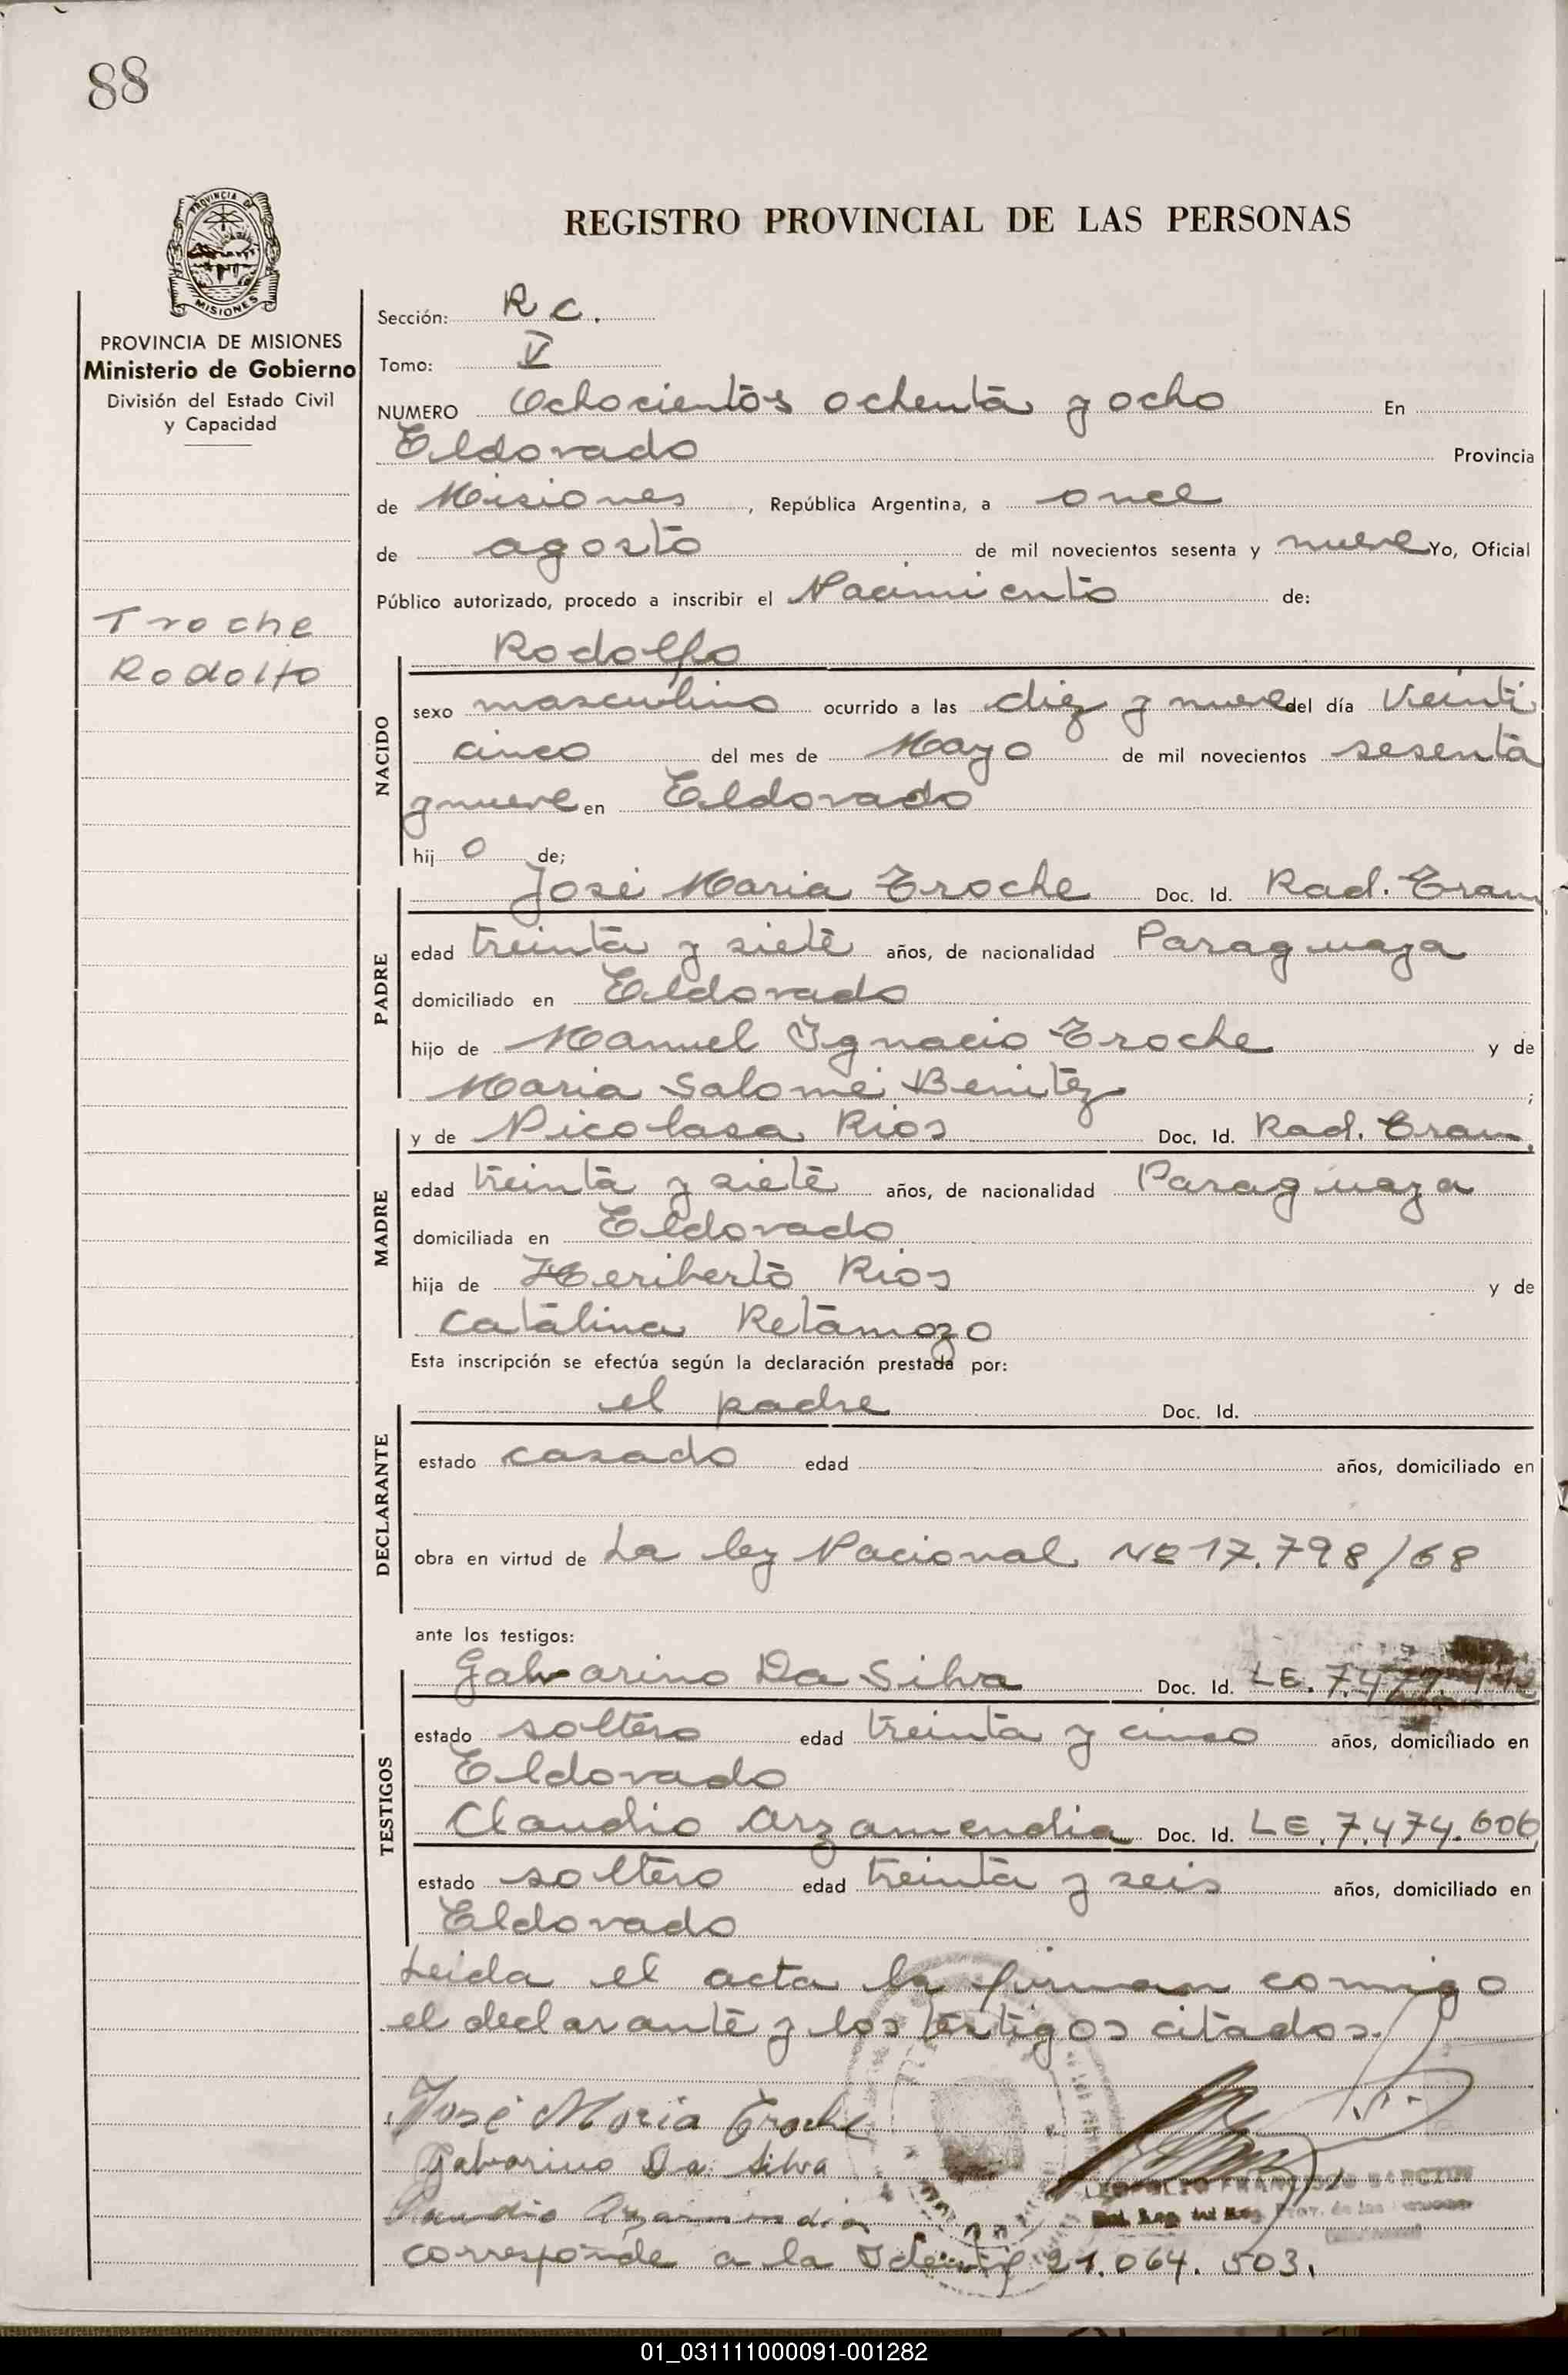 88
PROVINCIA DE
MISIONES
REGISTRO PROVINCIAL DE LAS PERSONAS
PROVINCIA DE MISIONES
Ministerio de Gobierno
División del Estado Civil
y Capacidad
Troche
Rodolfo
Sección: R C.
Tomo: V
NUMERO Ochocientos ochenta y ocho En
Eldorado Provincia
de Misiones, República Argentina, a once
de agosto de mil novecientos sesenta y nueve Yo, Oficial
Público autorizado, procedo a inscribir el Nacimiento de:
NACIDO
Rodolfo
sexo masculino ocurrido a las diez y nueve del día Veinti
cinco del mes de Mayo de mil novecientos sesenta
y nueve en Eldorado
hijo de;
PADRE
José Maria Troche Doc. Id. Rad. Tram
edad treinta y siete años, de nacionalidad Paraguaya
domiciliado en Eldorado
hijo de Manuel Ignacio Troche y de
Maria Salomé Benitez;
MADRE
y de Nicolasa Rios Doc. Id. Rad. Tram.
edad treinta y siete años, de nacionalidad Paraguaya
domiciliada en Eldorado
hija de Heriberto Rios y de
Catalina Retamozo
Esta inscripción se efectúa según la declaración prestada por:
DECLARANTE
el padre Doc. Id.
estado casado edad años, domiciliado en
obra en virtud de La ley Nacional Nº 17.798/68
ante los testigos:
TESTIGOS
Galvarino Da Silva Doc. Id. LE. 7.477.
estado soltero edad treinta y cinco años, domiciliado en
Eldorado
Claudio Arzamendia Doc. Id. LE. 7.474.606
estado soltero edad treinta y seis años, domiciliado en
Eldorado
Leida el acta la firman comigo
el declarante y los testigos citados.
José Maria Troche
Galvarino Da Silva
Claudio Arzamindia
FRANCISCO
corresponde a la Identif 21.064.503.
01_031111000091-001282